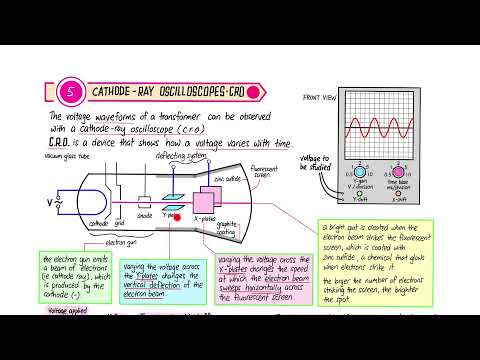 5 CATHODE-RAY OSCILLOSCOPES-CRO
The voltage waveforms of a transformer can be observed
with a cathode-ray oscilloscope (cro)
C.R.O. is a device that shows how a voltage varies with time.
vacuum glass tube
deflecting system
fluorescent
screen
zinc sulfide
V
cathode
grid
anode
Y-plates
X-plates
graphite
coating
electron gun
FRONT VIEW
voltage to
be studied
Y-gain
V / division
time base
ms/division
Y-shift
X-shift
the electron gun emits
a beam of electrons
(ie cathode ray), which
is produced by the
cathode (-)
varying the voltage across
the Y-plates changes the
vertical deflection of the
electron beam.
varying the voltage cross the
X-plates changes the speed
at which the electron beam
sweeps horizontally across
the fluorescent screen.
a bright spot is created when the
electron beam strikes the fluorescent
screen, which is coated with
zinc sulfide, a chemical that glows
when electrons strike it.
the larger the number of electrons
striking the screen, the brighter
the spot.
voltage applied